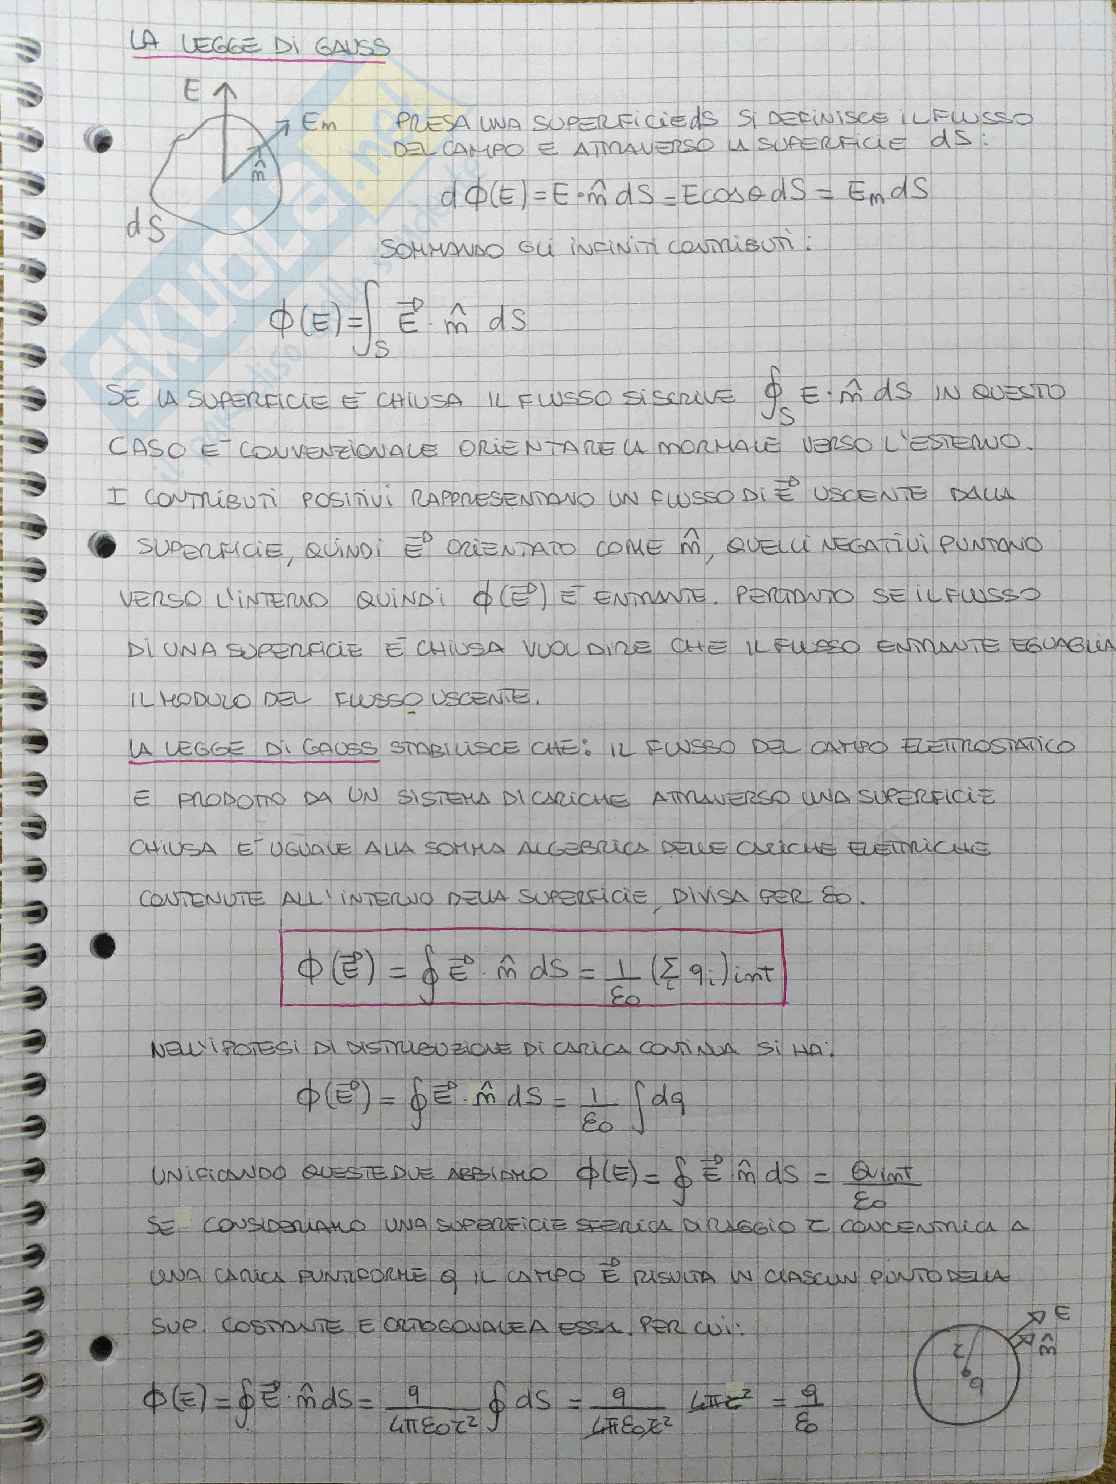 LA LEGGE DI GAUSS
E
Em
m̂
dS
PRESA UNA SUPERFICIE dS SI DEFINISCE IL FLUSSO
DEL CAMPO E ATTRAVERSO LA SUPERFICIE dS:
dΦ(E) = E · m̂ dS = E cosθ dS = Em dS
SOMMANDO GLI INFINITI CONTRIBUTI:
Φ(E) = ∫S E⃗ · m̂ dS
SE LA SUPERFICIE È CHIUSA IL FLUSSO SI SCRIVE ∮S E · m̂ dS IN QUESTO
CASO È CONVENZIONALE ORIENTARE LA NORMALE VERSO L'ESTERNO.
I CONTRIBUTI POSITIVI RAPPRESENTANO UN FLUSSO DI E⃗ USCENTE DALLA
SUPERFICIE, QUINDI E⃗ ORIENTATO COME m̂, QUELLI NEGATIVI PUNTANO
VERSO L'INTERNO QUINDI Φ(E⃗) È ENTRANTE. PERTANTO SE IL FLUSSO
DI UNA SUPERFICIE È CHIUSA VUOL DIRE CHE IL FLUSSO ENTRANTE EGUAGLIA
IL MODULO DEL FLUSSO USCENTE.
LA LEGGE DI GAUSS STABILISCE CHE: IL FLUSSO DEL CAMPO ELETTROSTATICO
E PRODOTTO DA UN SISTEMA DI CARICHE ATTRAVERSO UNA SUPERFICIE
CHIUSA È UGUALE ALLA SOMMA ALGEBRICA DELLE CARICHE ELETTRICHE
CONTENUTE ALL'INTERNO DELLA SUPERFICIE, DIVISA PER ε0.
Φ(E⃗) = ∮ E⃗ · m̂ dS = 1/ε0 (Σi qi) int
NELL'IPOTESI DI DISTRIBUZIONE DI CARICA CONTINUA SI HA:
Φ(E⃗) = ∮ E⃗ · m̂ dS = 1/ε0 ∫ dq
UNIFICANDO QUESTE DUE ABBIAMO Φ(E) = ∮ E⃗ m̂ dS = Qint/ε0
SE CONSIDERIAMO UNA SUPERFICIE SFERICA DI RAGGIO r CONCENTRICA A
UNA CARICA PUNTIFORME q IL CAMPO E⃗ RISULTA IN CIASCUN PUNTO DELLA
SUP. COSTANTE E ORTOGONALE A ESSA. PER CUI:
E
m̂
r
q
Φ(E) = ∮ E⃗ · m̂ dS = q/4πε0r² ∮ dS = q/4πε0r² 4πr² = q/ε0